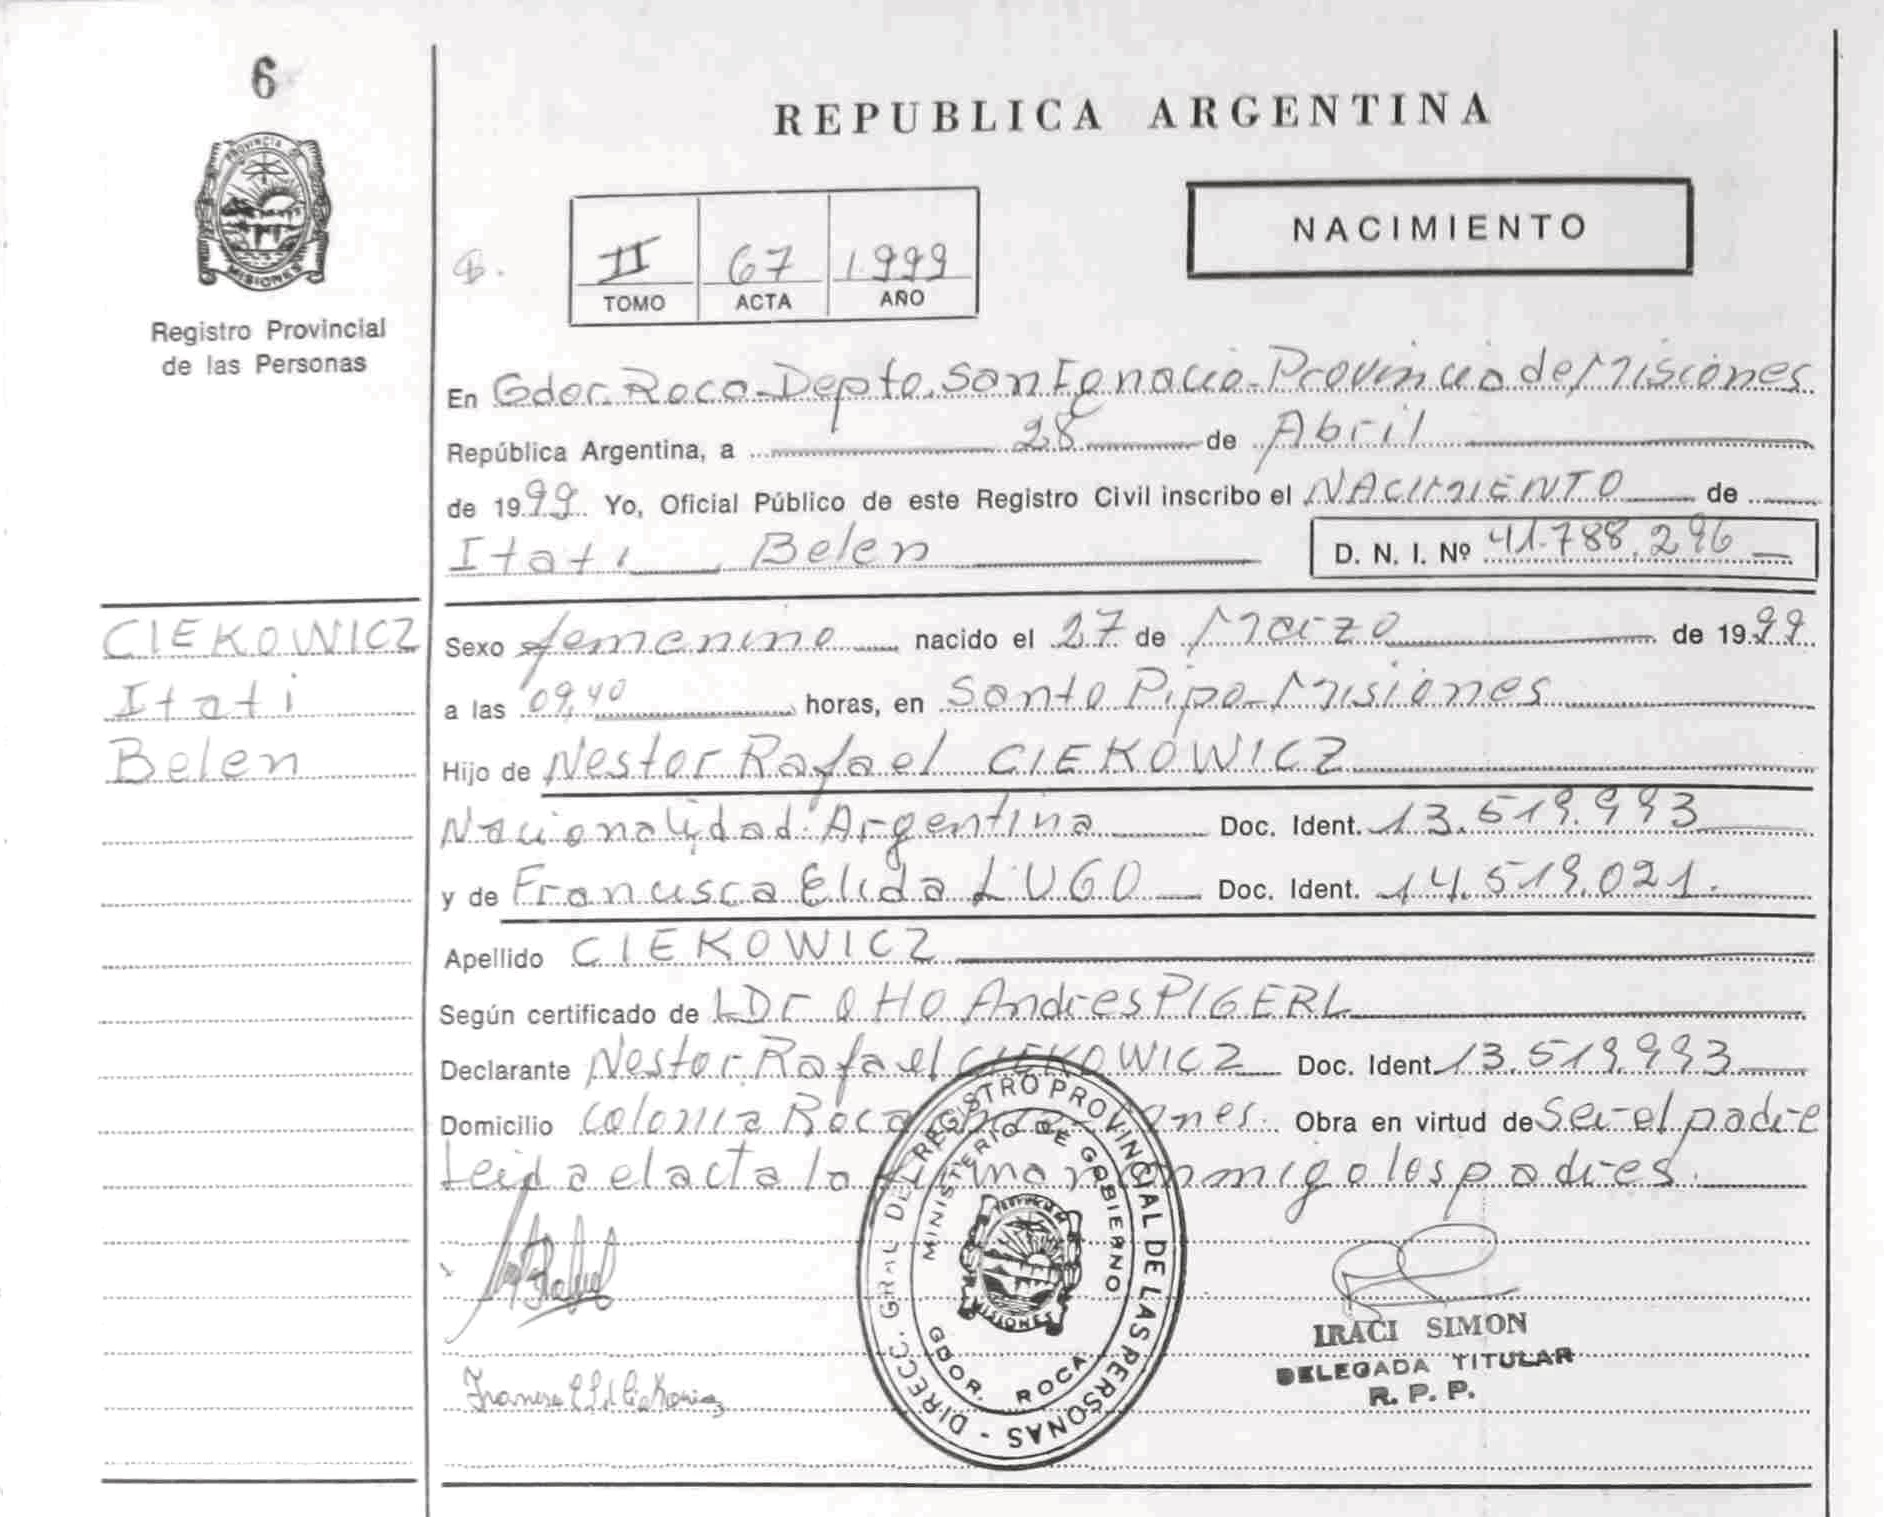 6
PROVINCIA DE
MISIONES
Registro Provincial
de las Personas
REPUBLICA ARGENTINA
NACIMIENTO
II 67 1999
TOMO ACTA AÑO
En Gdor. Roca - Depto. San Ignacio - Provincia de Misiones
República Argentina, a 28 de Abril
de 1999 Yo, Oficial Público de este Registro Civil inscribo el NACIMIENTO de
Itati Belen D. N. I. Nº 41.788.296
CIEKOWICZ
Itati
Belen
Sexo femenino nacido el 27 de Marzo de 1999
a las 09,40 horas, en Santo Pipo - Misiones
Hijo de Nestor Rafael CIEKOWICZ
Nacionalidad: Argentina Doc. Ident. 13.519.993
y de Francisca Elida LUGO Doc. Ident. 14.519.021.
Apellido CIEKOWICZ
Según certificado de Andres PIGERL
Declarante Nestor Rafael CIEKOWICZ Doc. Ident. 13.519.993
Domicilio Colonia Roca Obra en virtud de Ser el padre
Leida el acta la conmigo los padres.
DIRECC. GRAL DEL REGISTRO PROVINCIAL DE LAS PERSONAS -
MINISTERIO DE GOBIERNO
MISIONES
GDOR. ROCA
IRACI SIMON
DELEGADA TITULAR
R. P. P.